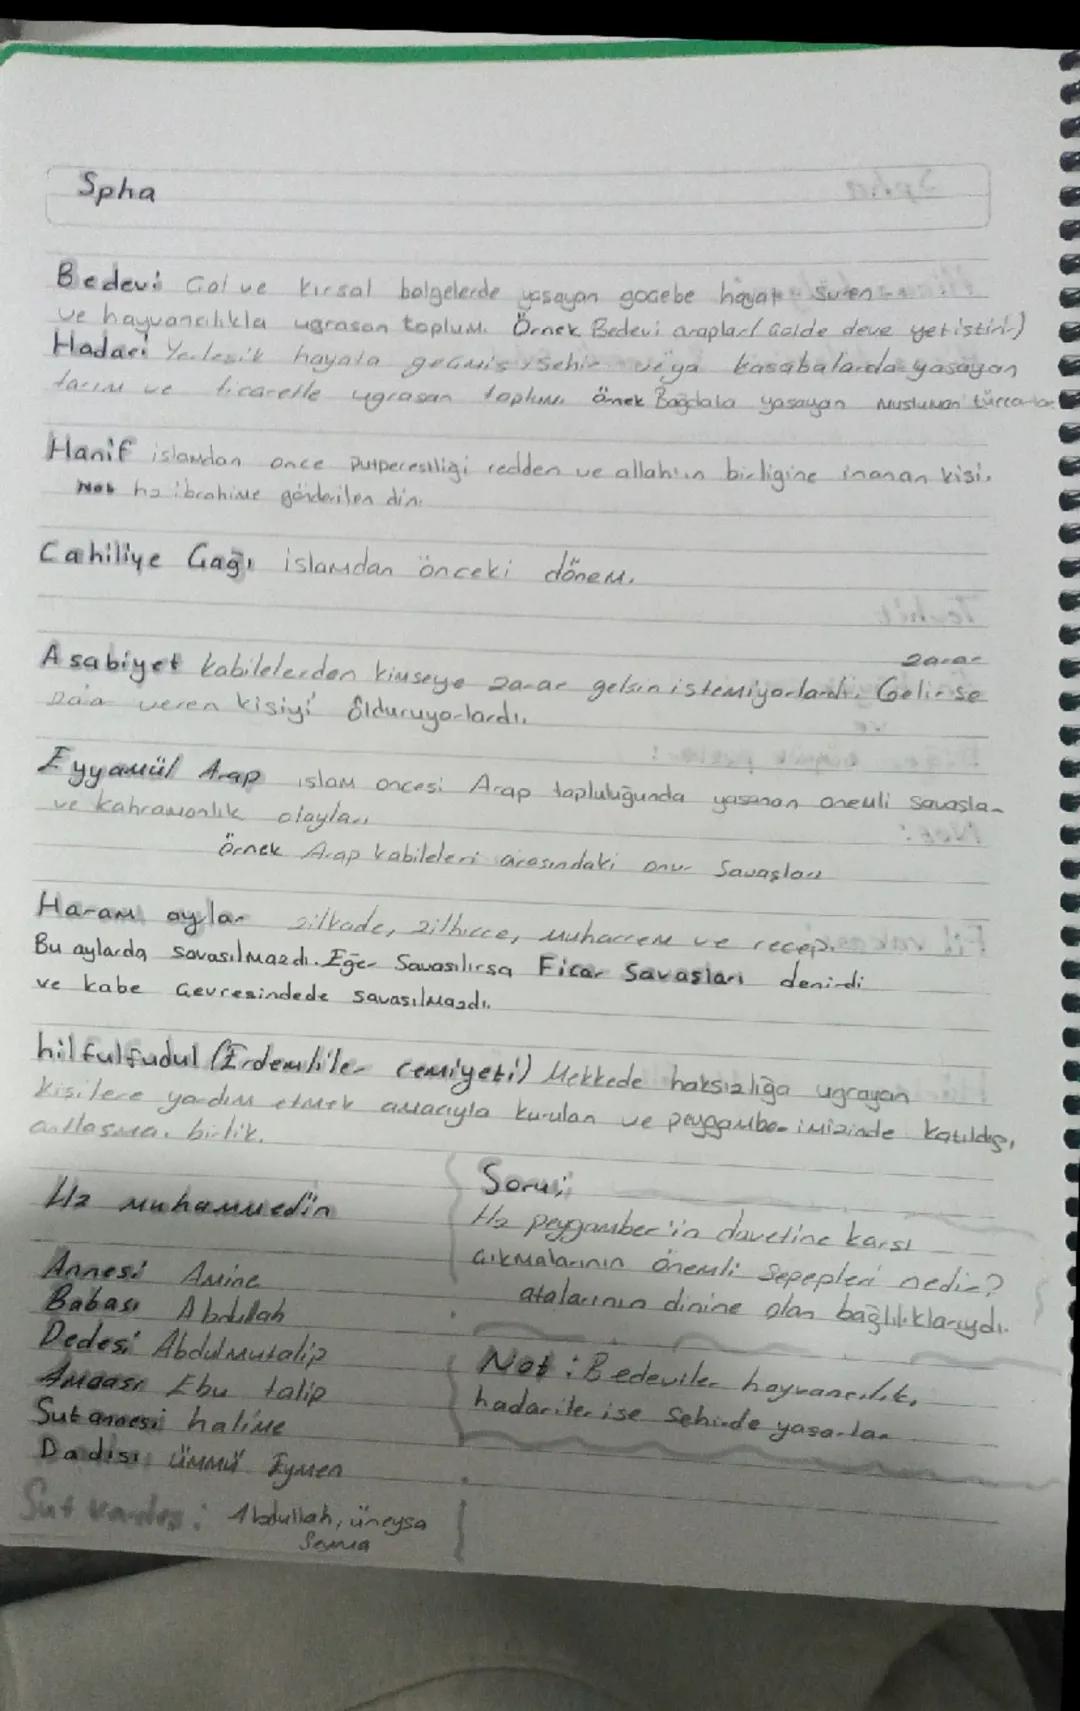 Spha
Bedevi Çöl ve kırsal bolgelerde yasayan gocebe hayat suren
ve hayvancılıkla ugrasan toplum. Örnek Bedevi araplar( Çolde deve yetistirir)
Hadari Yerlesik hayata geçmis sehir veya kasabalarda yasayan
tarım ve ticaretle ugrasan toplum. Örnek Bağdata yasayan Musluman türccarlar
Hanif islamdan once putperestliği redden ve allah'ın birligine inanan kisi.
Not hz ibrahime gönderilen din.
Cahiliye Çağı islamdan önceki dönem.
zarar
Asabiyet kabilelerden kimseye zarar gelsin istemiyorlardı. Gelirse
veren kisiyi ölduruyorlardı.
Eyyamül Arap islam oncesi Arap topluluğunda yasanan onemli savaslar
ve kahramanlık olayları
Örnek Arap kabileleri arasındaki onur Savaşları
Haram aylar zilkade, zilhicce, muharrem ve recep.
Bu aylarda savasılmazdı. Eğer Savasılırsa Ficar Savasları denirdi
ve kabe Çevresindede savasılmazdı.
hilfulfudul (Erdemliler cemiyeti) Mekkede haksızlığa ugrayan
kisilere yardım etmek amacıyla kurulan ve peygamberimizinde katıldığı
antlasma. birlik.
Hz muhammedin
Annesi Amine
Babası Abdullah
Dedesi Abdulmutalip
Amcası Ebu talip
Sut annesi halime
Dadısı ümmü Eymen
Sut kardes: Abdullah, üneysa
Seyma
Soru;
Hz peygamber'in davetine karsı
çıkmalarının önemli Sepepleri nedir?
atalarının dinine olan bağlılıklarıydı.
Not : Bedeviler hayvancılık,
hadariler ise Sehirde yasarlar